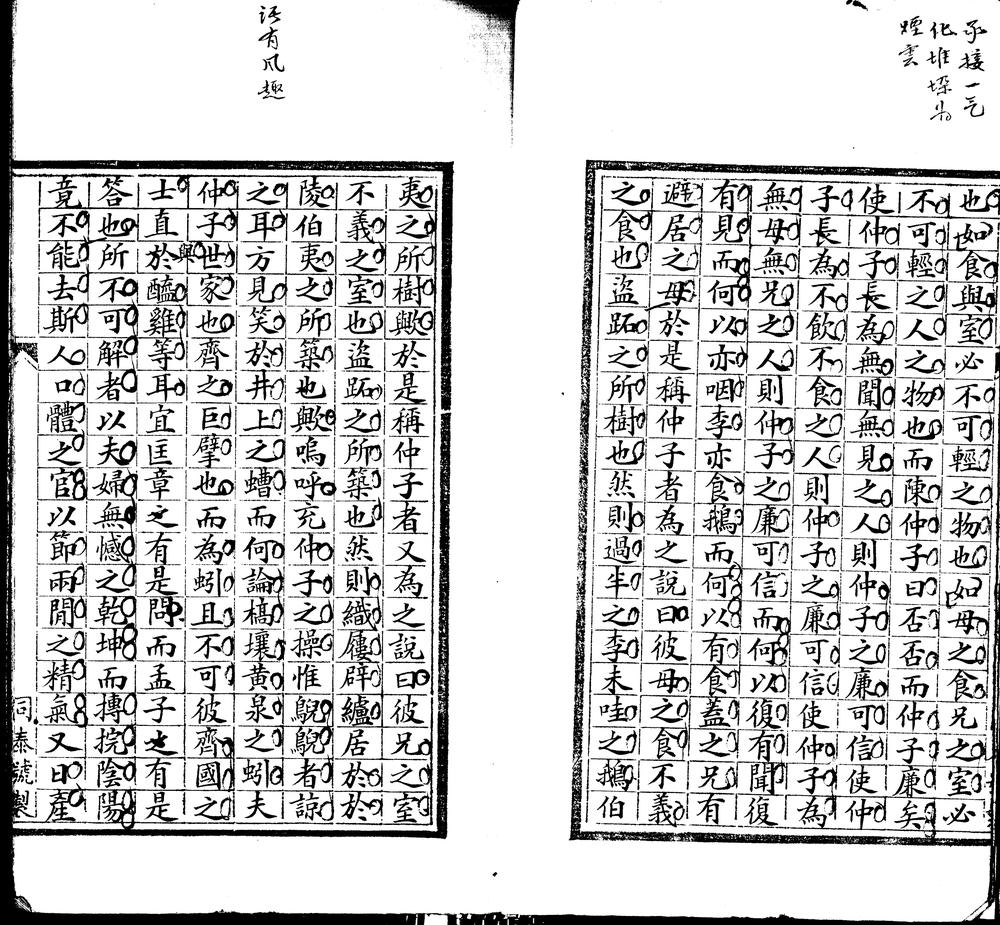 承接一气
化堆垛为
煙雲
也如食與室必不可輕之物也如母之食兄之室必
不可輕之人之物也而陳仲子曰否否而仲子廉矣
使仲子長為無聞無見之人則仲子之廉可信使仲
子長為不飲不食之人則仲子之廉可信使仲子為
無母無兄之人則仲子之廉可信而何以復有聞復
有見而何以亦咽李亦食鵝而何以有食蓋之兄有
避居之母於是稱仲子者為之說曰彼母之食不義
之食也盜跖之所樹也然則過半之李未哇之鵝伯
語有風趣
夷之所樹歟於是稱仲子者又為之說曰彼兄之室
不義之室也盜跖之所築也然則織屨辟纑居於於
陵伯夷之所築也歟嗚呼充仲子之操惟鶃鶃者諒
之耳方見笑於井上之螬而何論槁壤黃泉之蚓夫
仲子世家也齊之巨擘也而為蚓且不可彼齊國之
士直於醯雞等耳宜匡章之有是問而孟子之有是
與
答也所不可解者以夫婦無憾之乾坤而摶捖陰陽
竟不能去斯人口體之官以節兩間之精氣又曰產
同泰號製